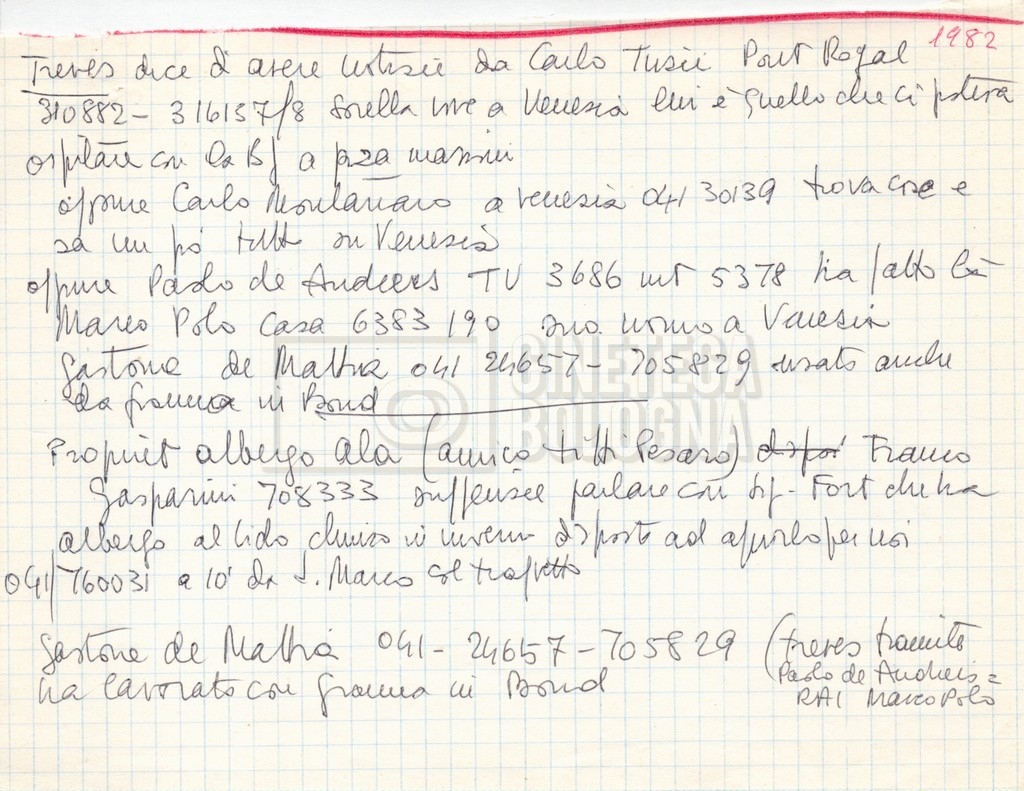 1982
Treves dice d'avere notizie da Carlo Tusii Port Royal
310882 - 316157/8 sorella vive a Venezia lui è quello che ci poteva
ospitare con la BJ a p.za massimi
oppure Carlo Montanaro a venezia 041 30139 trova case e
sa un pò tutto su Venezia
oppure Paolo de Andreis TV 3686 int 5378 ha fatto la
Marco Polo casa 6383190 suo uomo a Venezia
Gastone de Mattia 041 24657 - 705829 usato anche
da in Bond
CINETECA
BOLOGNA
Propriet albergo Ala (amico titti Pesaro) Franco
Gasparini 708333 suggerisce parlare con sig. Fort che ha
albergo al Lido chiuso in inverno disposto ad aprirlo per noi
041/760031 a 10' da S. Marco col traghetto
Gastone de Mattia 041 - 24657 - 705829 (treves tramite
Paolo de Andreis =
RAI Marco Polo
ha lavorato con in Bond